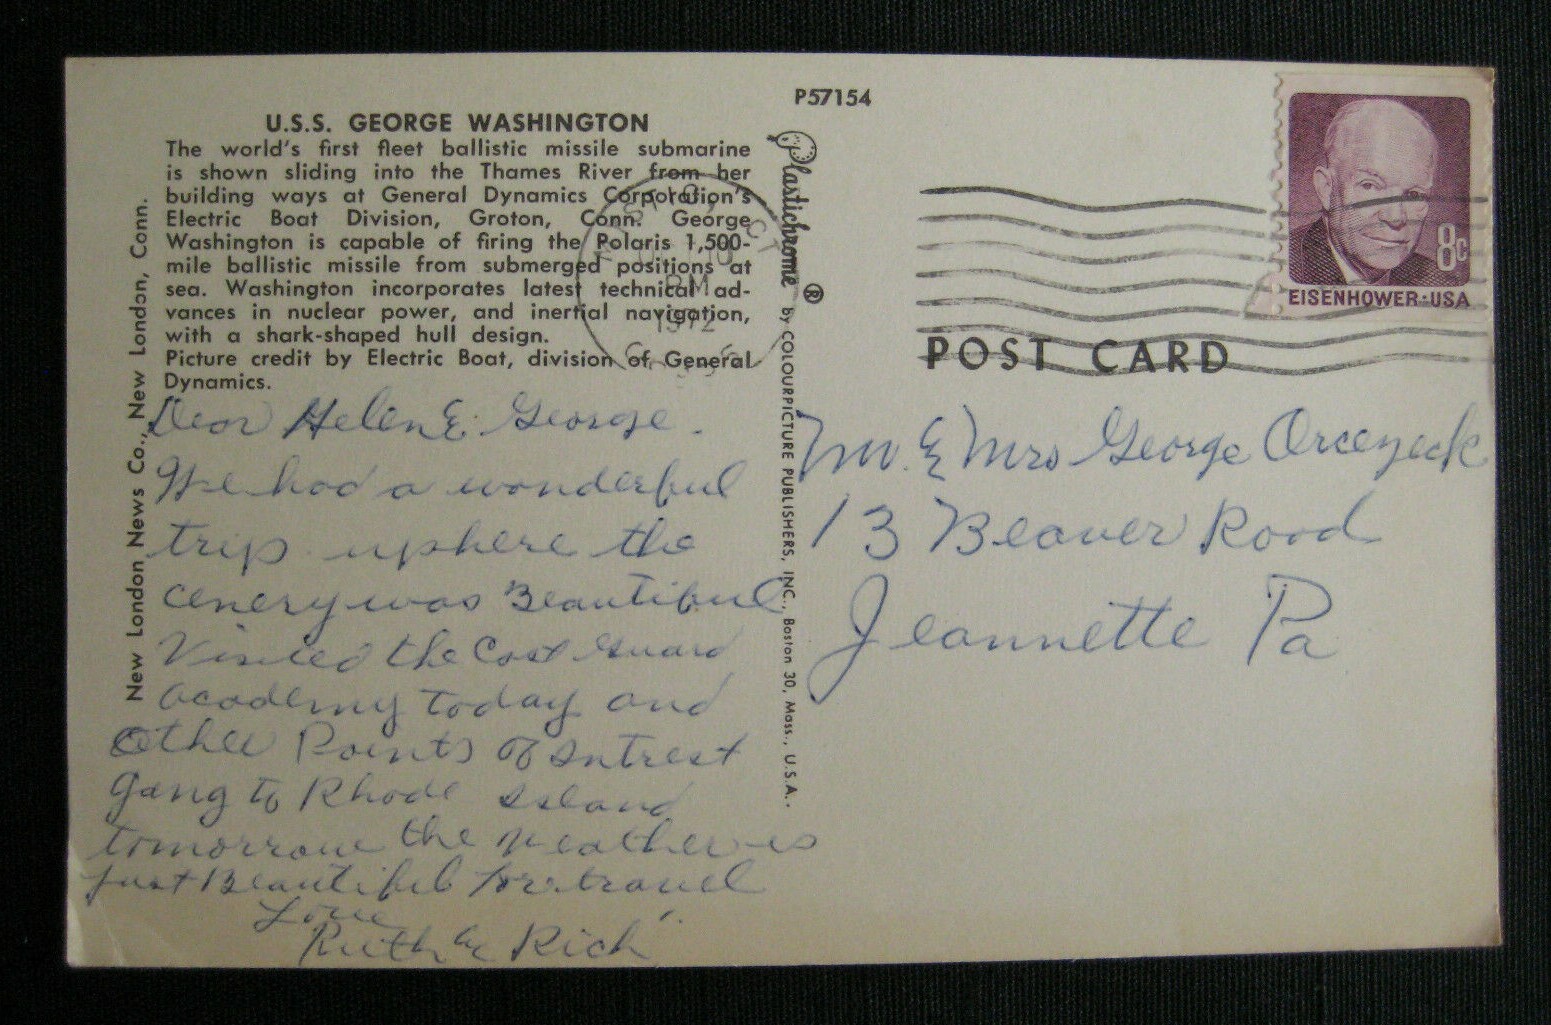 P57154
U.S.S. GEORGE WASHINGTON
The world's first fleet ballistic missile submarine
is shown sliding into the Thames River from her
building ways at General Dynamics Corporation's
Electric Boat Division, Groton, Conn. George
Washington is capable of firing the Polaris 1,500-
mile ballistic missile from submerged positions at
sea. Washington incorporates latest technical ad-
vances in nuclear power, and inertial navigation,
with a shark-shaped hull design.
Picture credit by Electric Boat, division of General
Dynamics.
New London News Co., New London, Conn.
Plastichrome ® by COLOURPICTURE PUBLISHERS, INC., Boston 30, Mass., U.S.A.
PM
1972
8c
EISENHOWER·USA
POST CARD
Dear Helen & George.
We had a wonderful
trip uphere the
cenery was Beautiful
Visited the Cost Guard
academy today and
other Points of Intrest
Gang to Rhode Island
tomorrow the weather is
just Beautiful for travel
Love
Ruth & Rich
Mr. & Mrs George
13 Beaver Road
Jeannette Pa